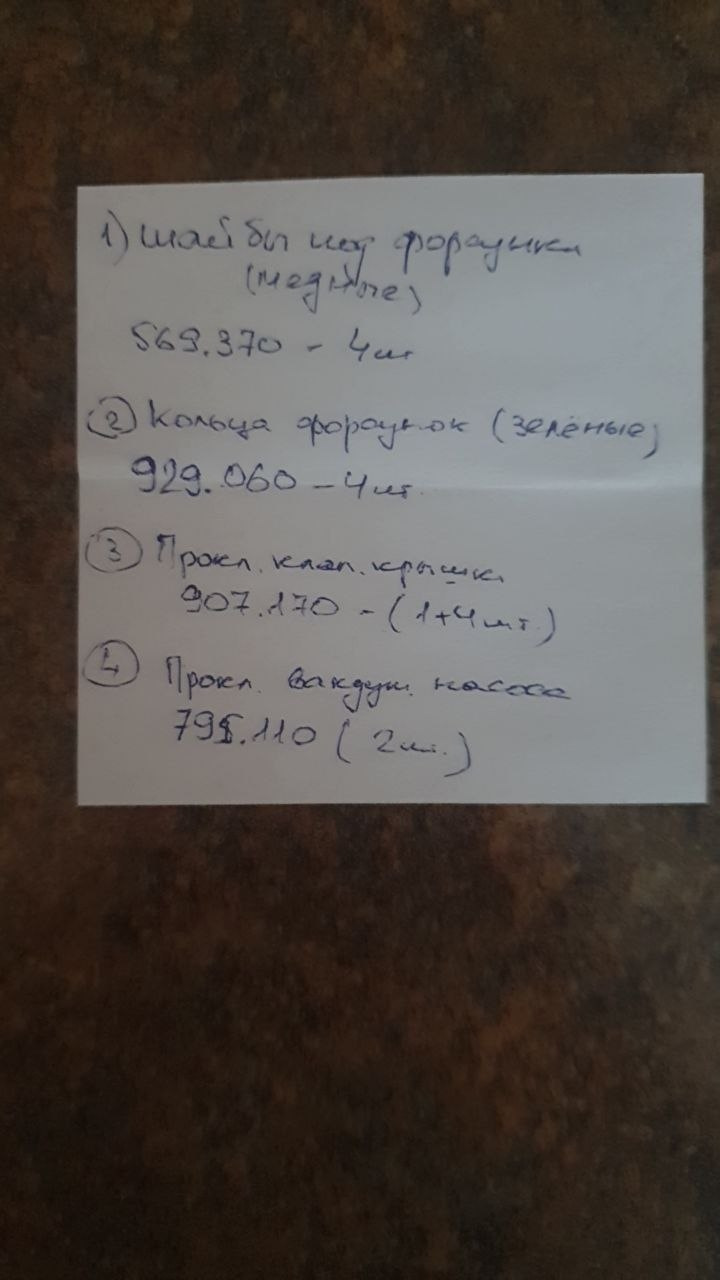 1) шайбы под форсунки
(медные)
569.370 - 4шт
2 Кольца форсунок (зелёные)
929.060 - 4шт.
3 Прокл. клап. крышки
907.170 - (1+4шт.)
4 Прокл. вакуум. насоса
795.110 (2шт.)